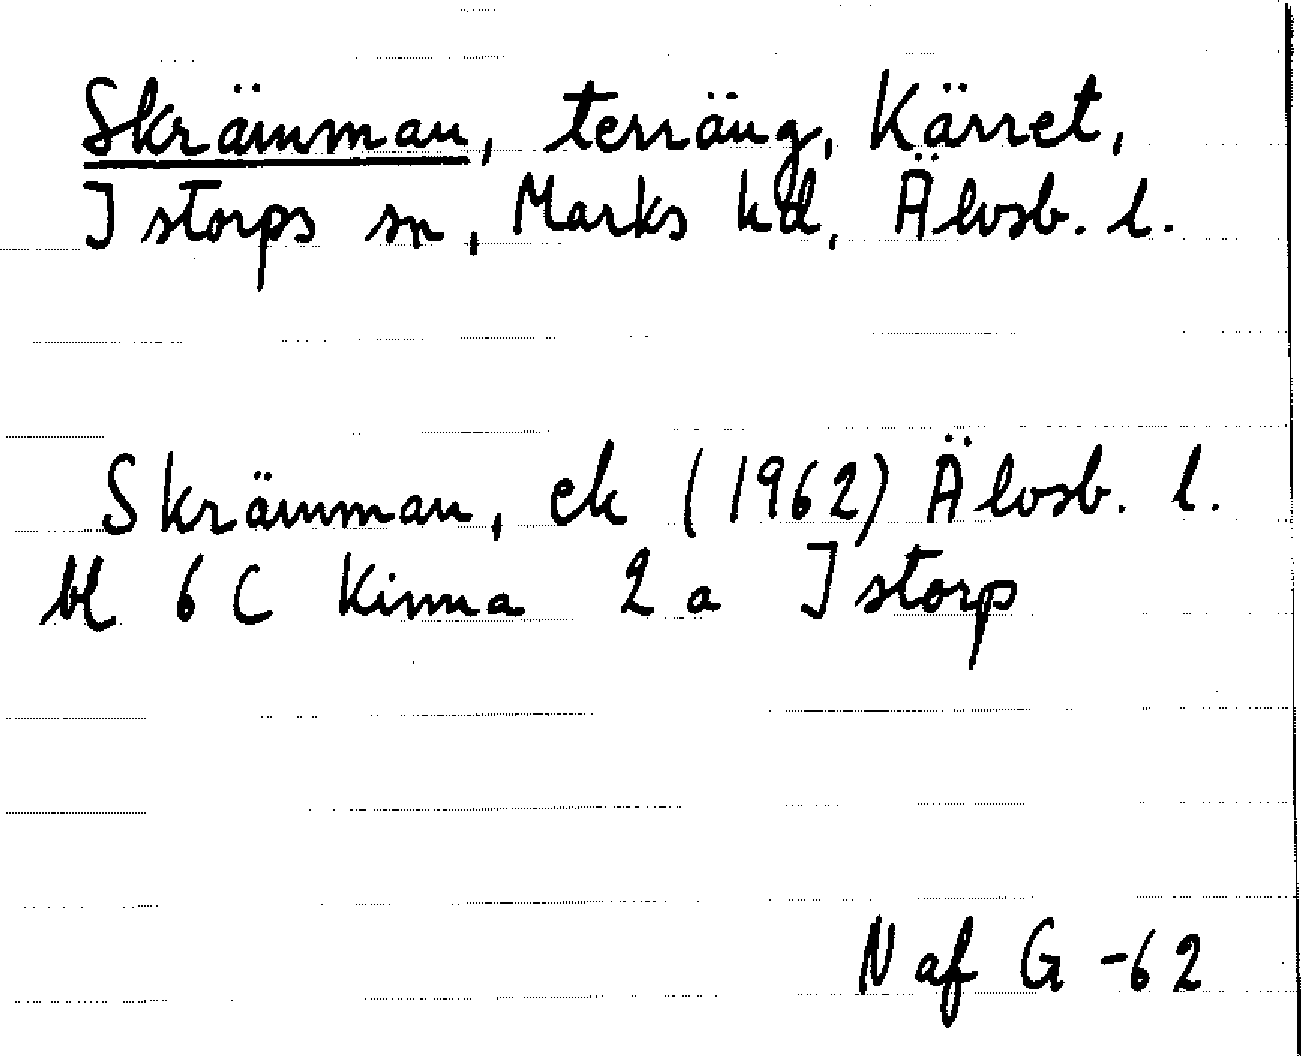 Skrämman, terräng, Kärret,
Istorps sn, Marks hd, Älvsb. l.
Skrämman, ek (1962) Älvsb. l.
bl 6 C Kinna 2 a Istorp
N af G -62